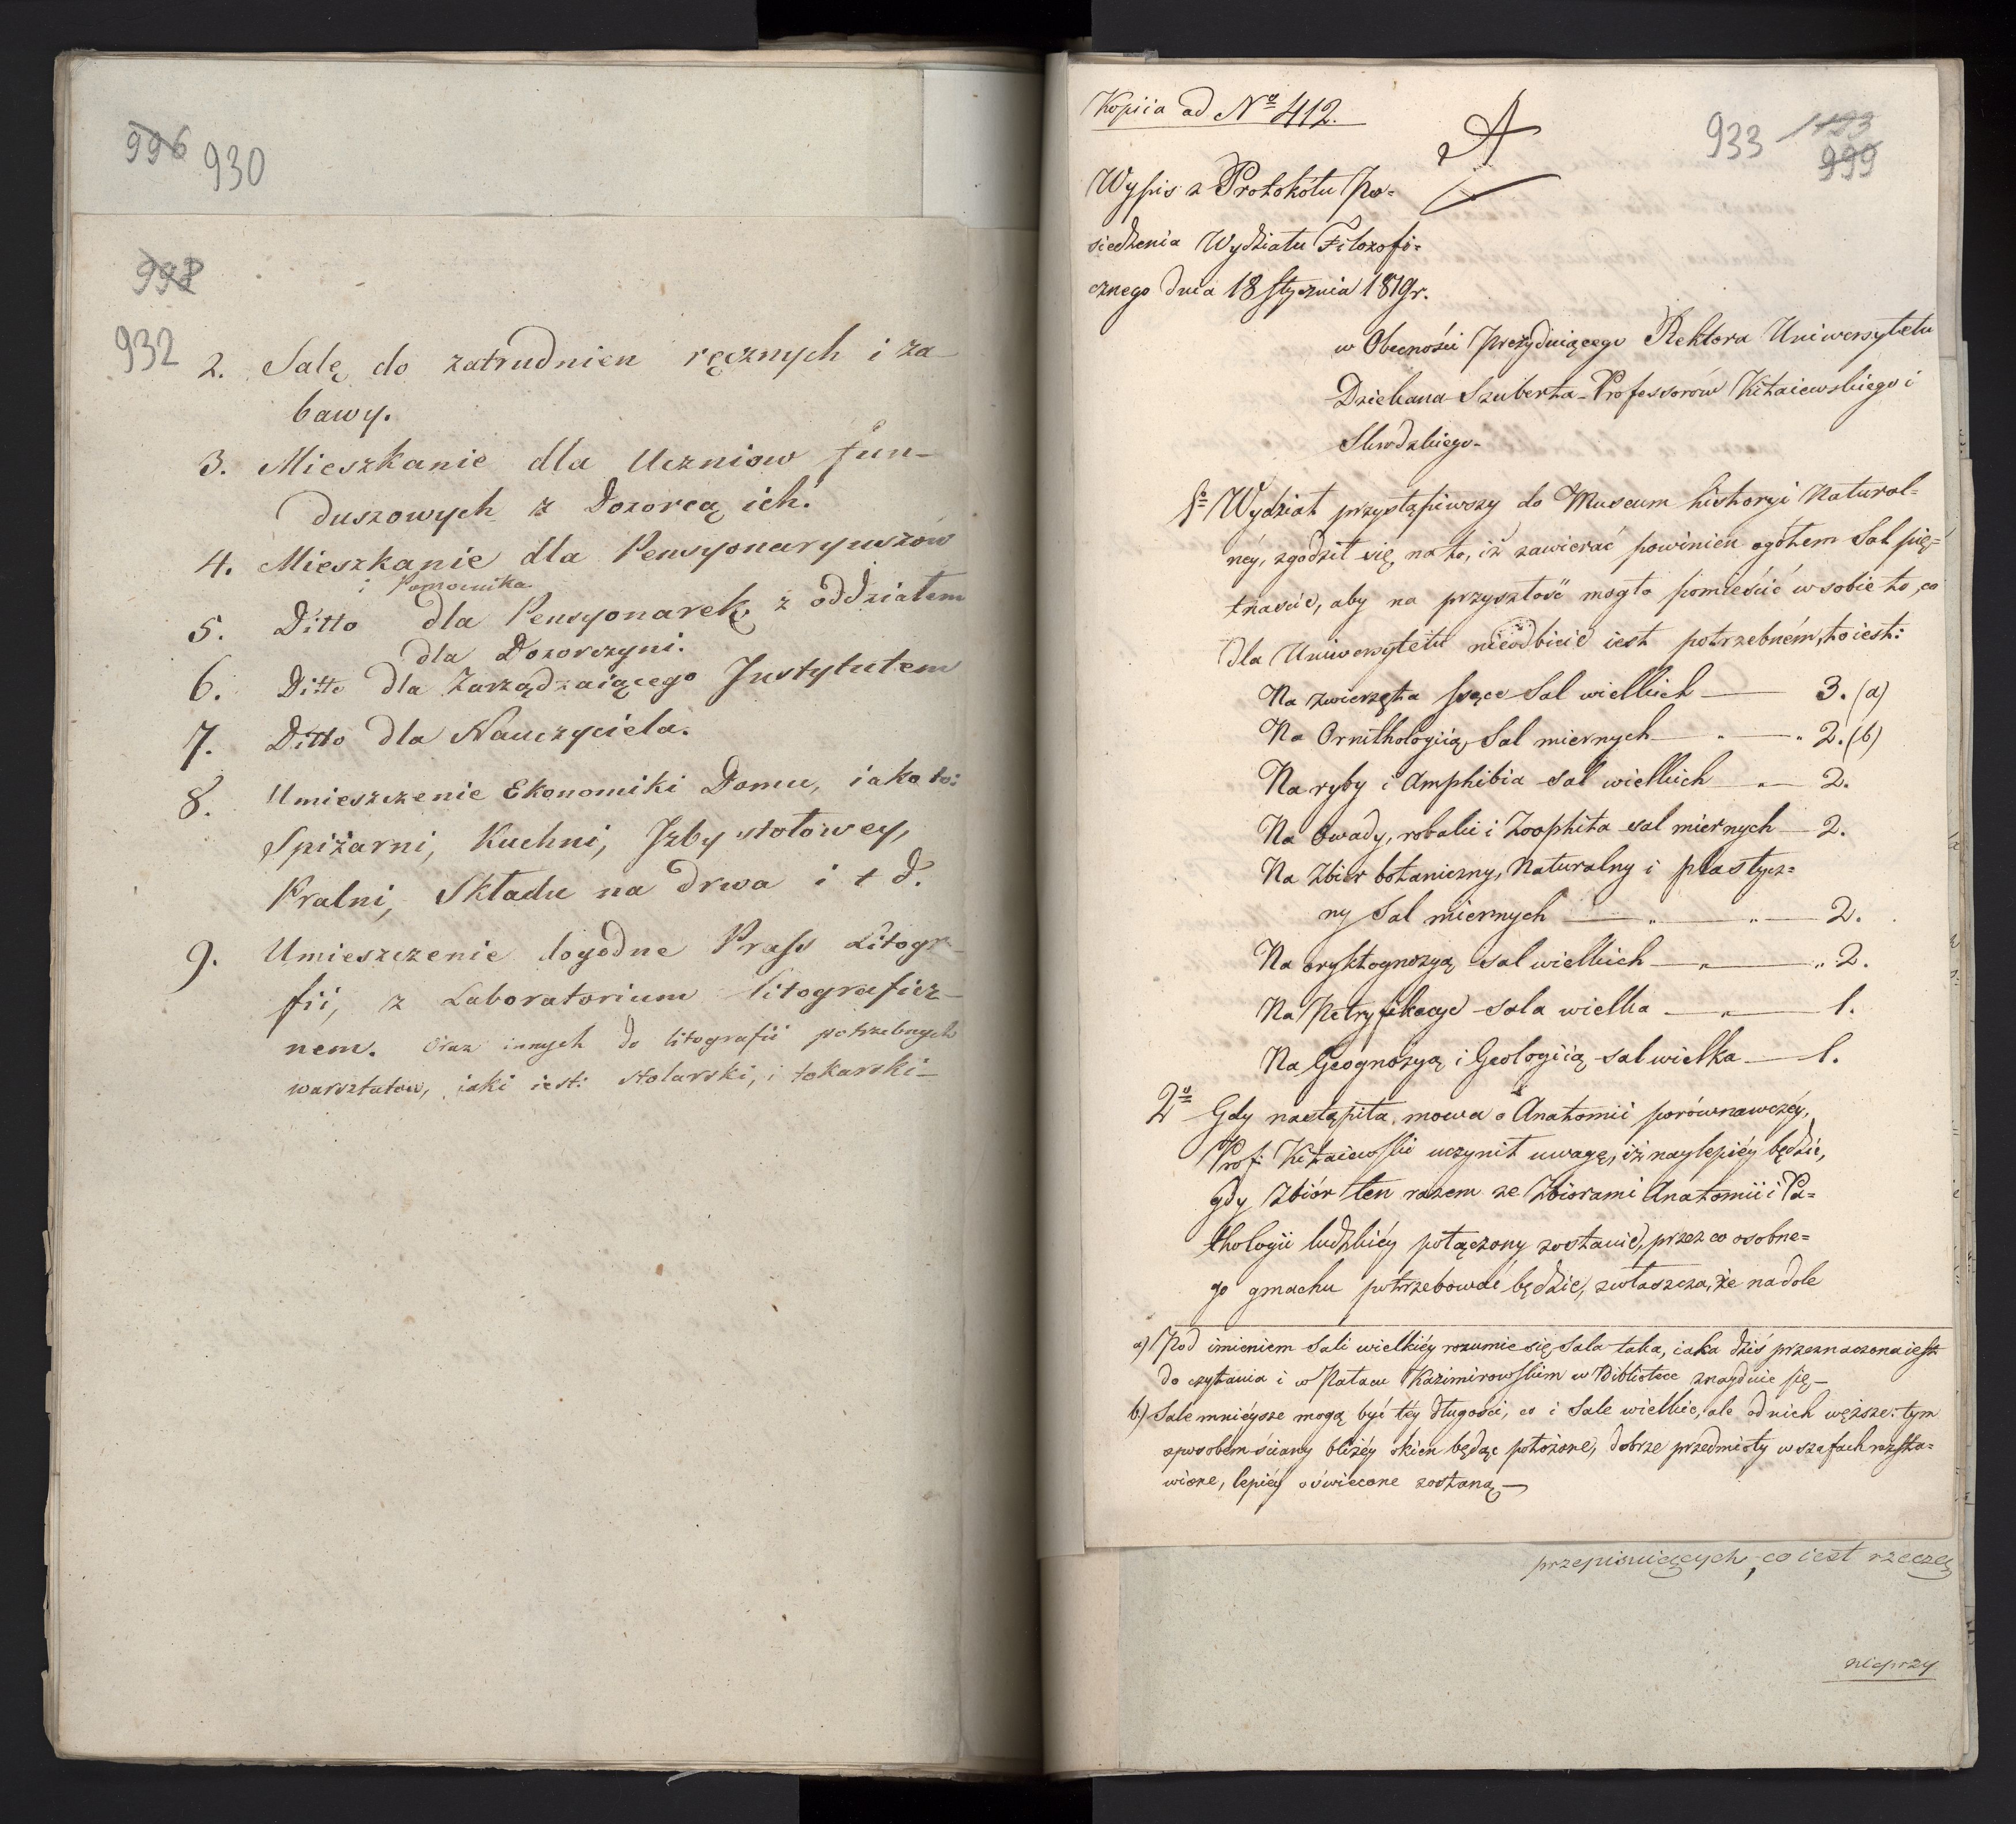 996 930
998
932
2. Salę do zatrudnien ręcznych i za-
bawy.
3. Mieszkanie dla Uczniow fun-
duszowych z Dozorcą ich.
4. Mieszkanie dla Pensyonaryuszów
i Pomocnika.
5. Ditto dla Pensyonarek, z oddziałem
dla Dozorczyni.
6. Ditto dla Zarządzaiącego Instytutem
7. Ditto dla Nauczyciela.
8. Umieszczenie Ekonomiki Domu, iako to:
Spiżarni, Kuchni, Izby stołowey,
Pralni, Składu na drwa i t d.
9. Umieszczenie dogodne Prass Litogra-
fii, z Laboratorium litograficz-
nem. Oraz innych do litografii potrzebnych
warsztatow, iaki iest: stolarski, i tokarski-
Kopiia ad No 412.
A
933 1193
999
Wypis z Protokółu Po=
siedzenia Wydziału Filozofi=
cznego dnia 18 Stycznia 1819r.
w Obecności Prezyduiącego Rektora Uniwersytetu
Dziekana Szuberta - Professorów Kitaiewskiego i
Skrodzkiego.
1o Wydział przystąpiwszy do Museum historyi Natural=
néy, zgodził się na to, iż zawierać powinien ogółem Sal pię=
tnaście, aby na przyszłość mogło pomieścić w sobie to, co
dla Uniwersytetu nieodbicie iest potrzebném, to iest:
Na zwierzęta ssące Sal wielkich — 3. (a)
Na Ornithologiią Sal miernych — " — " 2. (b)
Na ryby i Amphibia sal wielkich — " — 2.
Na Owady, robaki i Zoophita sal miernych — 2.
Na Zbiór botaniczny, Naturalny i plastycz=
ny Sal miernych — " — " — 2.
Na oryktognozyą sal wielkich — " — " 2.
Na Petryfikacye sala wielka — " — 1.
Na Geognozyą i Geologiią sal wielka — 1.
2o Gdy nastąpiła mowa o Anatomii porównawczéy,
Prof: Kitaiewski uczynił uwagę, iż naylepiéy będzie,
gdy Zbiór ten razem ze Zbiorami Anatomii i Pa=
thologii ludzkiéy połączony zostanie, przez co osobne=
go gmachu potrzebować będzie, zwłaszcza, że na dole
a) Pod imieniem Sali wielkiéy rozumie się Sala taka, iaka dziś przeznaczona iest
do czytania i w Pałacu Kazimirowskim w Bibliotece znayduie się —
b) Sale mniéysze mogą być téy długości, co i Sale wielkie, ale od nich węższe: tym
sposobem ściany bliżéy okien będąc położone, dobrze przedmioty w szafach rozsta=
wione, lepiéy oświecone zostaną —
przepisuiących, co iest rzeczą
nieprzy